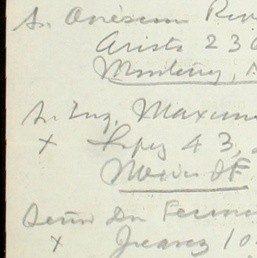 Sr. Onésimo
Arista 230
Monterrey, N
Sr. Ing. Maximi
x Lopez 43,
Mexico DF
Señor Don
x Juarez 10